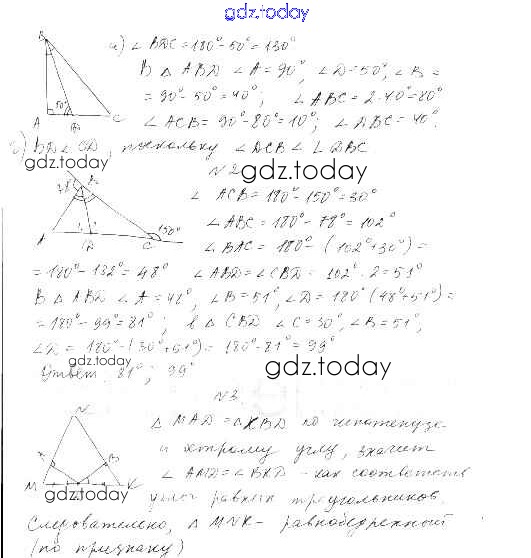 gdz.today
а) ∠BDC = 180° - 50° = 130°
В △ABD ∠A = 90°, ∠D = 50°, ∠B =
= 90° - 50° = 40°; ∠ABC = 2·40° = 80°
∠ACB = 90° - 80° = 10°; ∠DBC = 40°.
B
50°
A D C
BD < CD, поскольку ∠DCB < ∠DBC
gdz.today
gdz.today
N2
∠ACB = 180° - 150° = 30°
∠ABC = 180° - 78° = 102°
∠BAC = 180° - (102° + 30°) =
78° B
150°
A D C
gdz.today
= 180° - 132° = 48° ∠ABD = ∠CBD = 102° : 2 = 51°
В △ABD ∠A = 48°, ∠B = 51°, ∠D = 180° (48° + 51°) =
= 180° - 99° = 81°; в △CBD ∠C = 30°, ∠B = 51°,
∠D = 180° - (30° + 51°) = 180° - 81° = 99°
gdz.today
gdz.today
Ответ: 81°; 99°
N3
△MAD = △KBD по гипотенузе
и острому углу, значит
∠AMD = ∠BKD - как соответств
углы равных треугольников.
N
A B
M K
gdz.today
gdz.today
Следовательно, △MNK - равнобедренный
(по признаку)